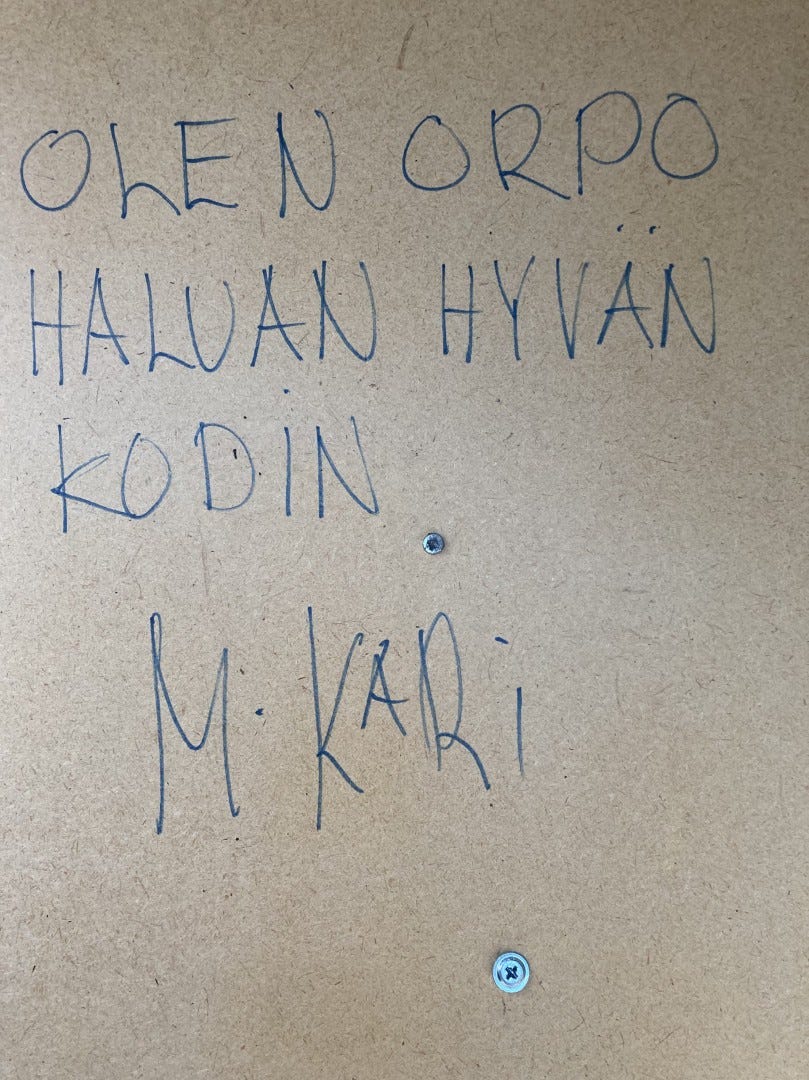 OLEN ORPO
HALUAN HYVÄN
KODIN
M. KARI